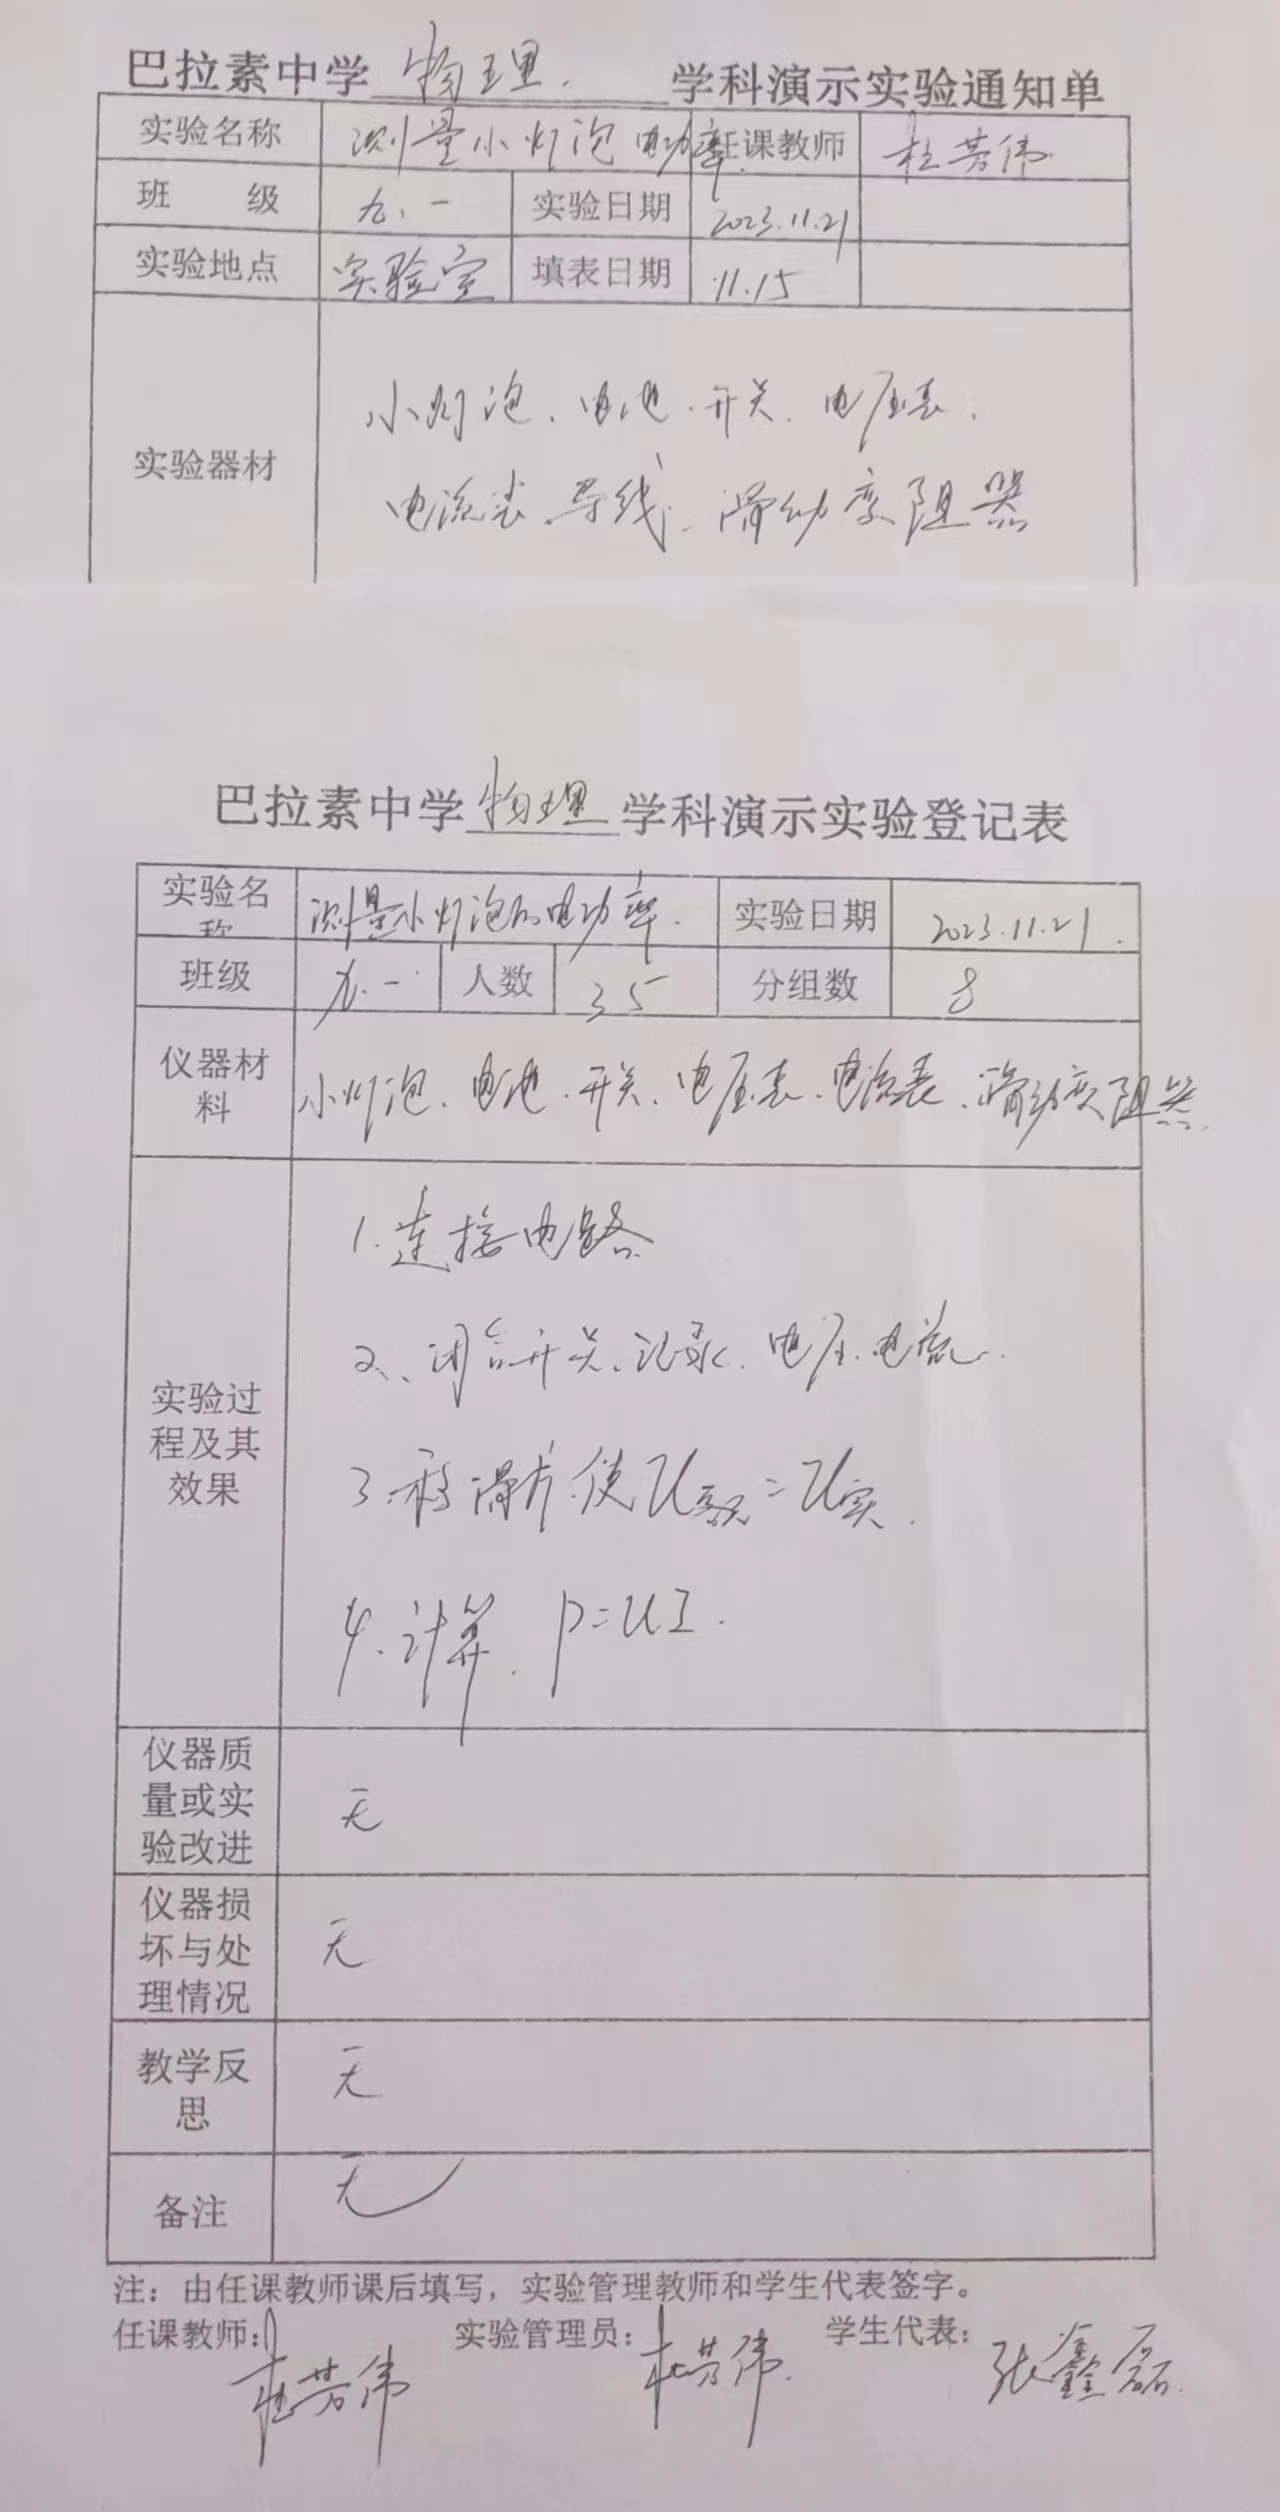 巴拉素中学 物理. 学科演示实验通知单
实验名称 测量小灯泡电功率 任课教师 杜芳伟
班 级 九.一 实验日期 2023.11.21
实验地点 实验室 填表日期 11.15
实验器材
小灯泡、电池.开关、电压表.
电流表.导线.滑动变阻器
巴拉素中学 物理 学科演示实验登记表
实验名称 测量小灯泡的电功率. 实验日期 2023.11.21.
班级 九.一 人数 35 分组数 8
仪器材料 小灯泡、电池.开关、电压表、电流表.滑动变阻器.
实验过程及其效果
1.连接电路
2、闭合开关、记录.电压.电流.
3.移滑片.使U额=U实.
4、计算. P=UI.
仪器质量或实验改进 无
仪器损坏与处理情况 无
教学反思 无
备注 无
注：由任课教师课后填写，实验管理教师和学生代表签字。
任课教师：杜芳伟 实验管理员：杜芳伟. 学生代表：张鑫磊.